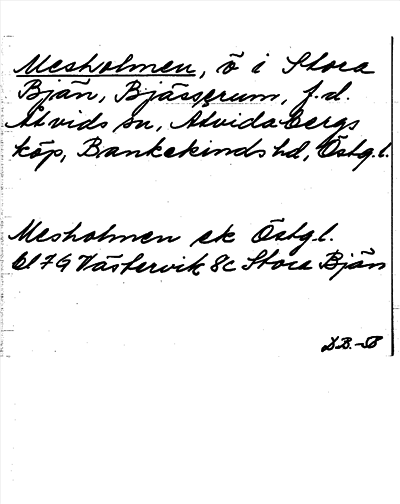 Mesholmen, ö i Stora
Bjän, Bjässerum, f.d.
Åtvids sn, Åtvidabergs
köp, Bankekinds hd, Östg.l.
Mesholmen ek Östg.l.
bl 79 Västervik 8c Stora Bjän